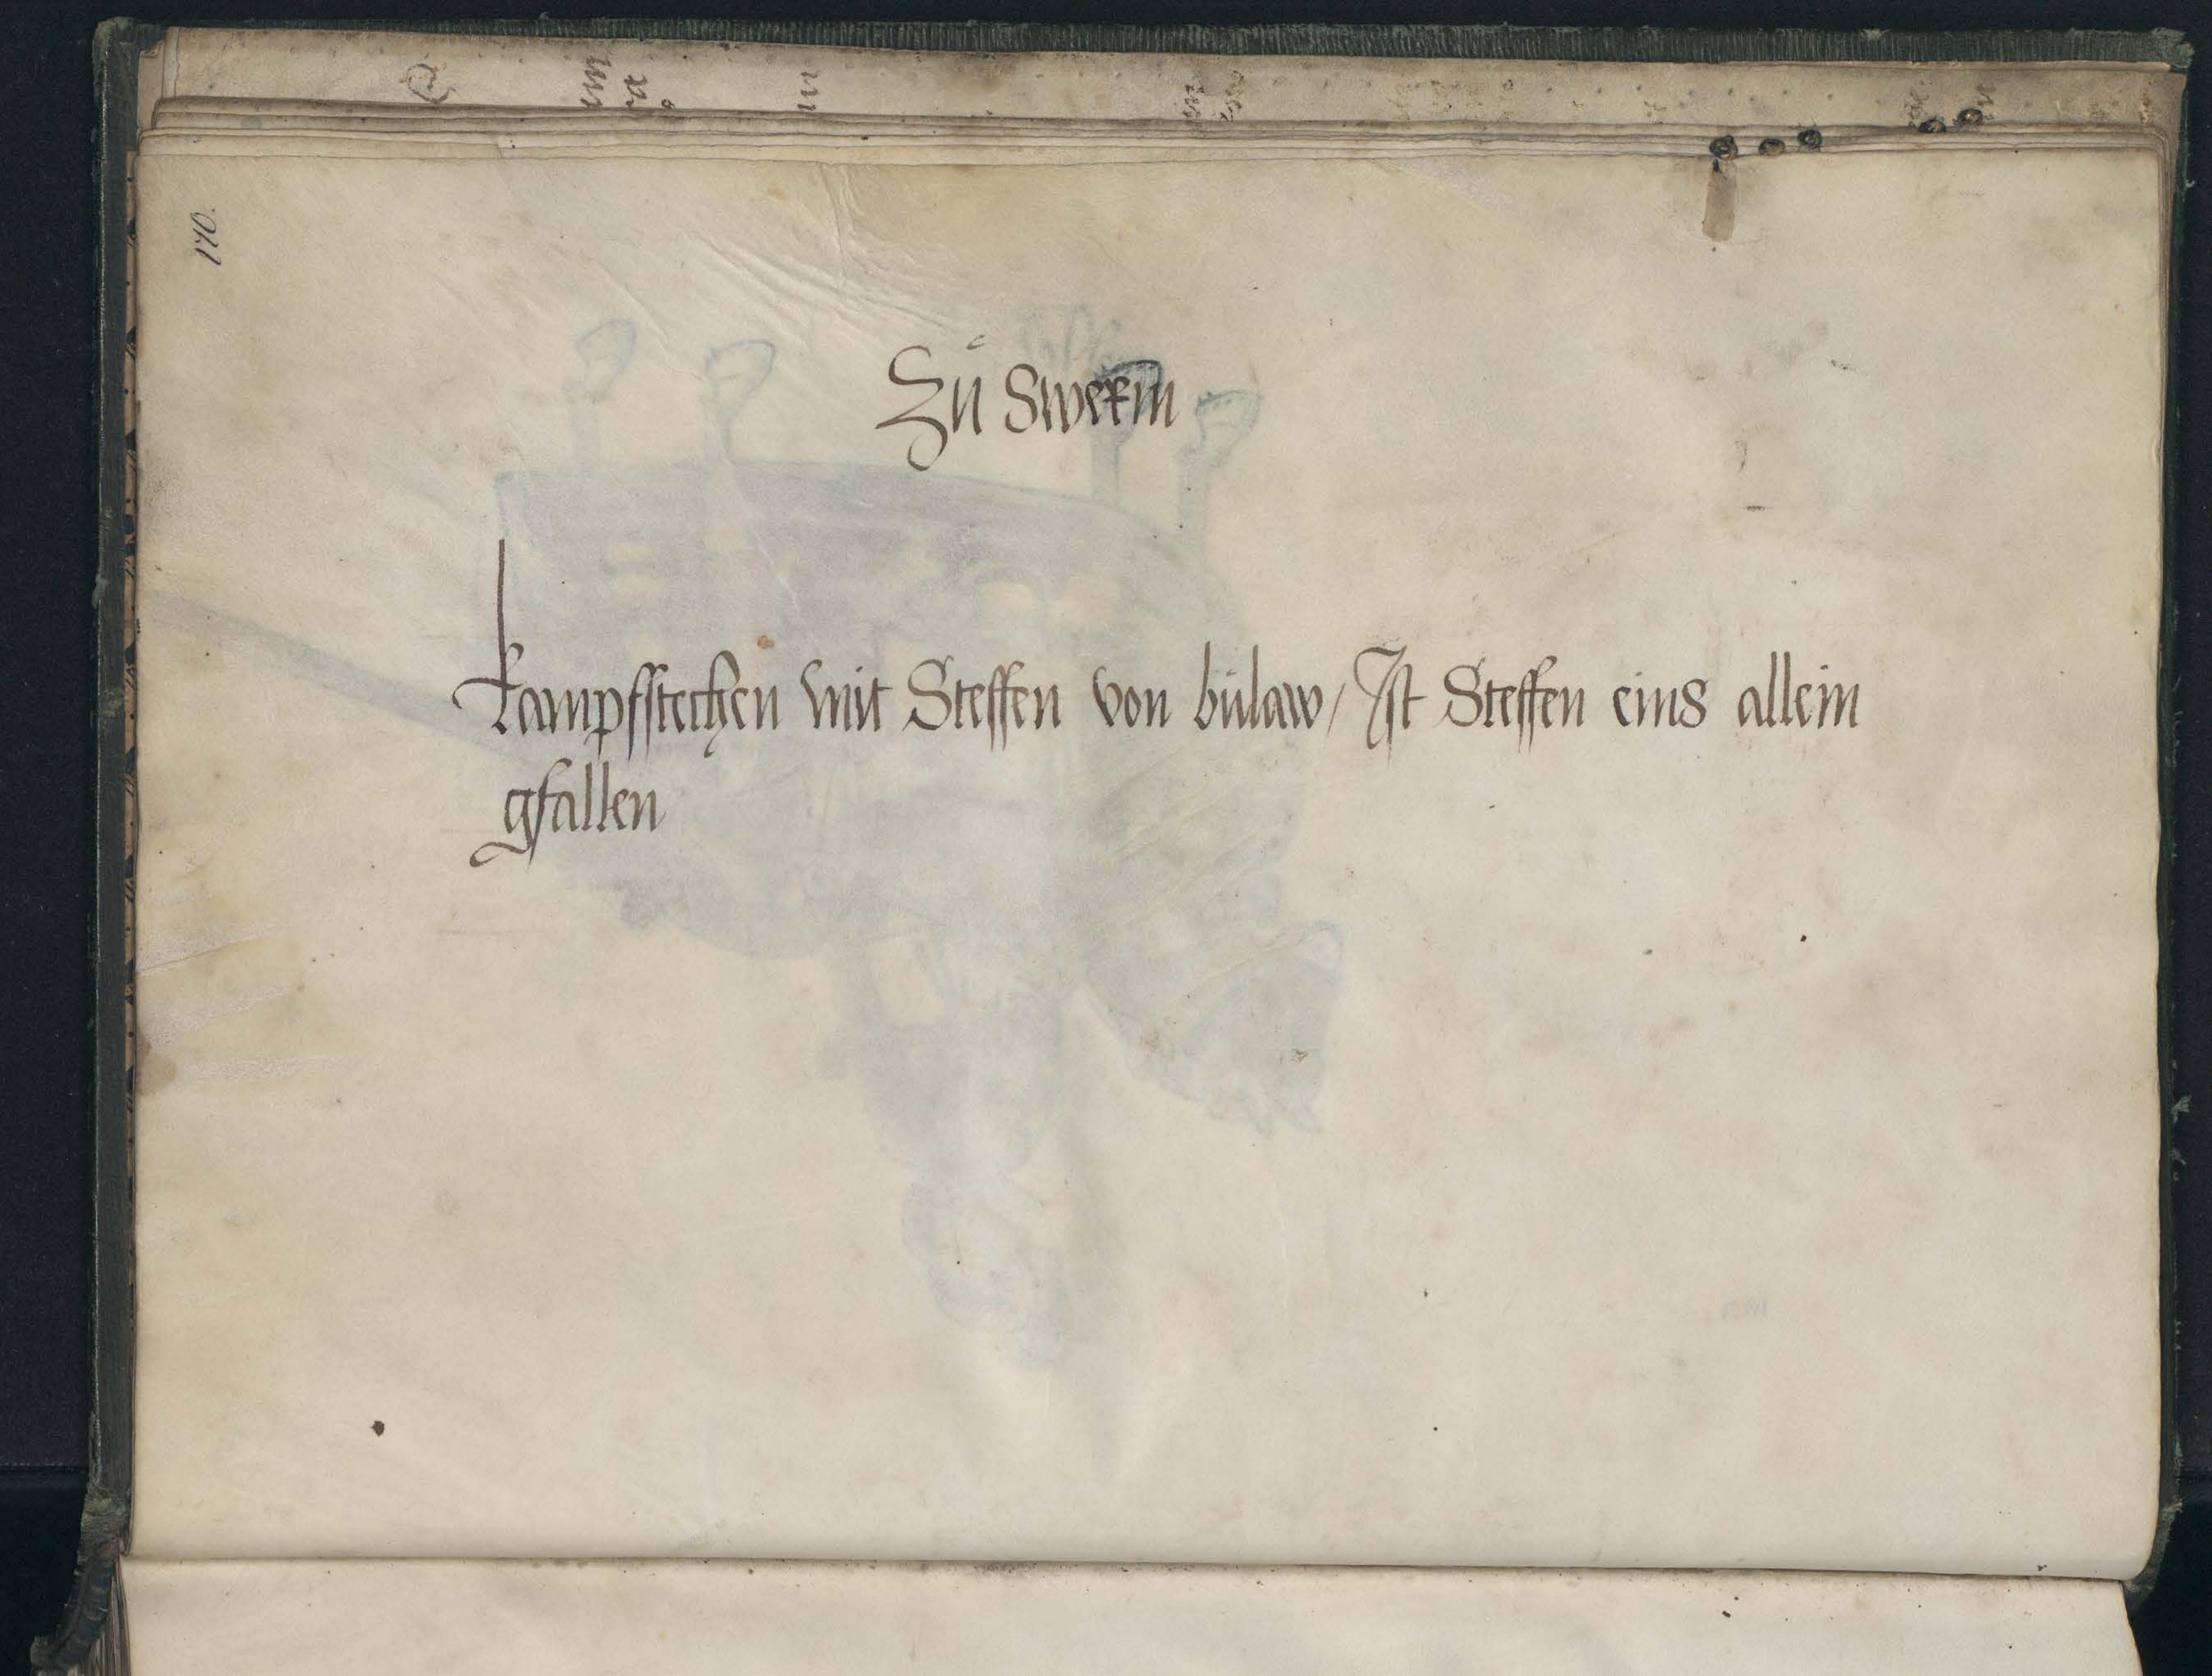 170.
Zu Swerin
kampfstechen mit Steffen von bülaw / Ist Steffen eins allein
gfallen